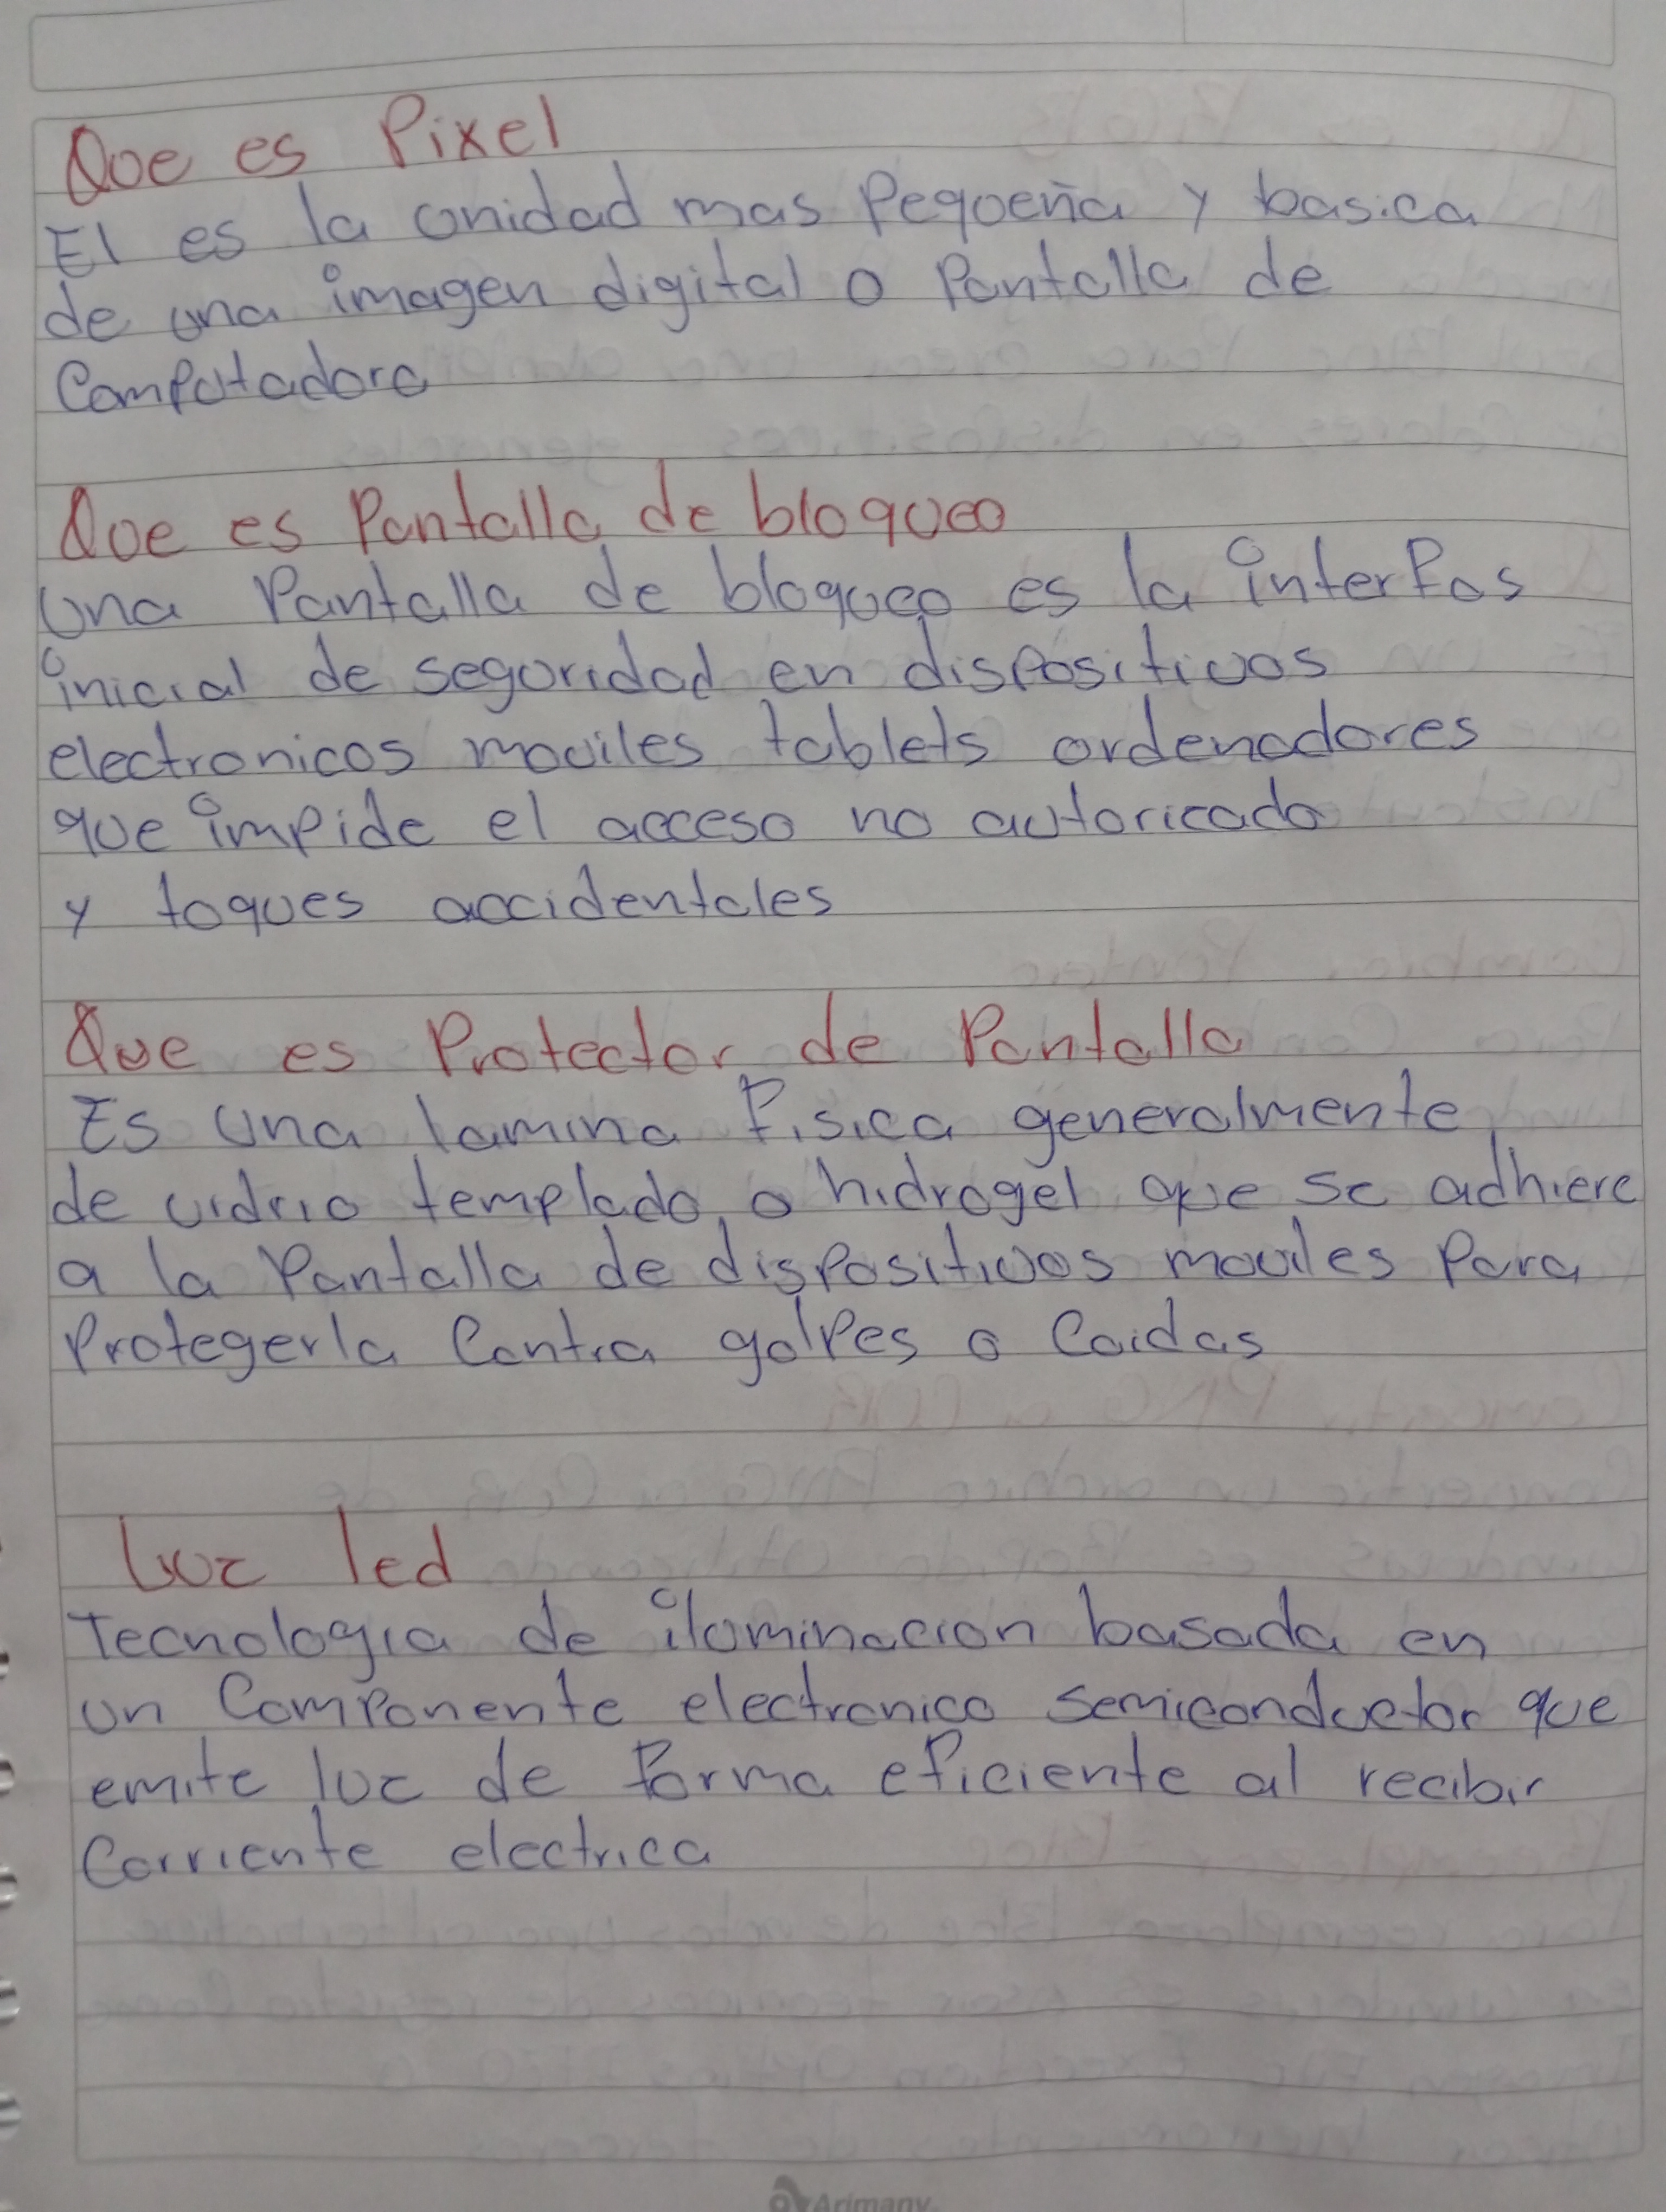 Que es Pixel
El es la unidad mas Pequeña y basica
de una imagen digital o Pantalla de
Computadora
Que es Pantalla de bloqueo
Una Pantalla de bloqueo es la interfas
inicial de seguridad en dispositivos
electronicos moviles tablets ordenadores
que impide el acceso no autoricado
y toques accidentales
Que es Protector de Pantalla
Es una lamina fisica generalmente
de vidrio templado o hidrogel que se adhiere
a la Pantalla de dispositivos moviles Para
Protegerla Contra golpes o Caidas
Luz led
Tecnologia de iluminacion basada en
un Componente electronico semiconductor que
emite luz de forma eficiente al recibir
Corriente electrica
Arimany